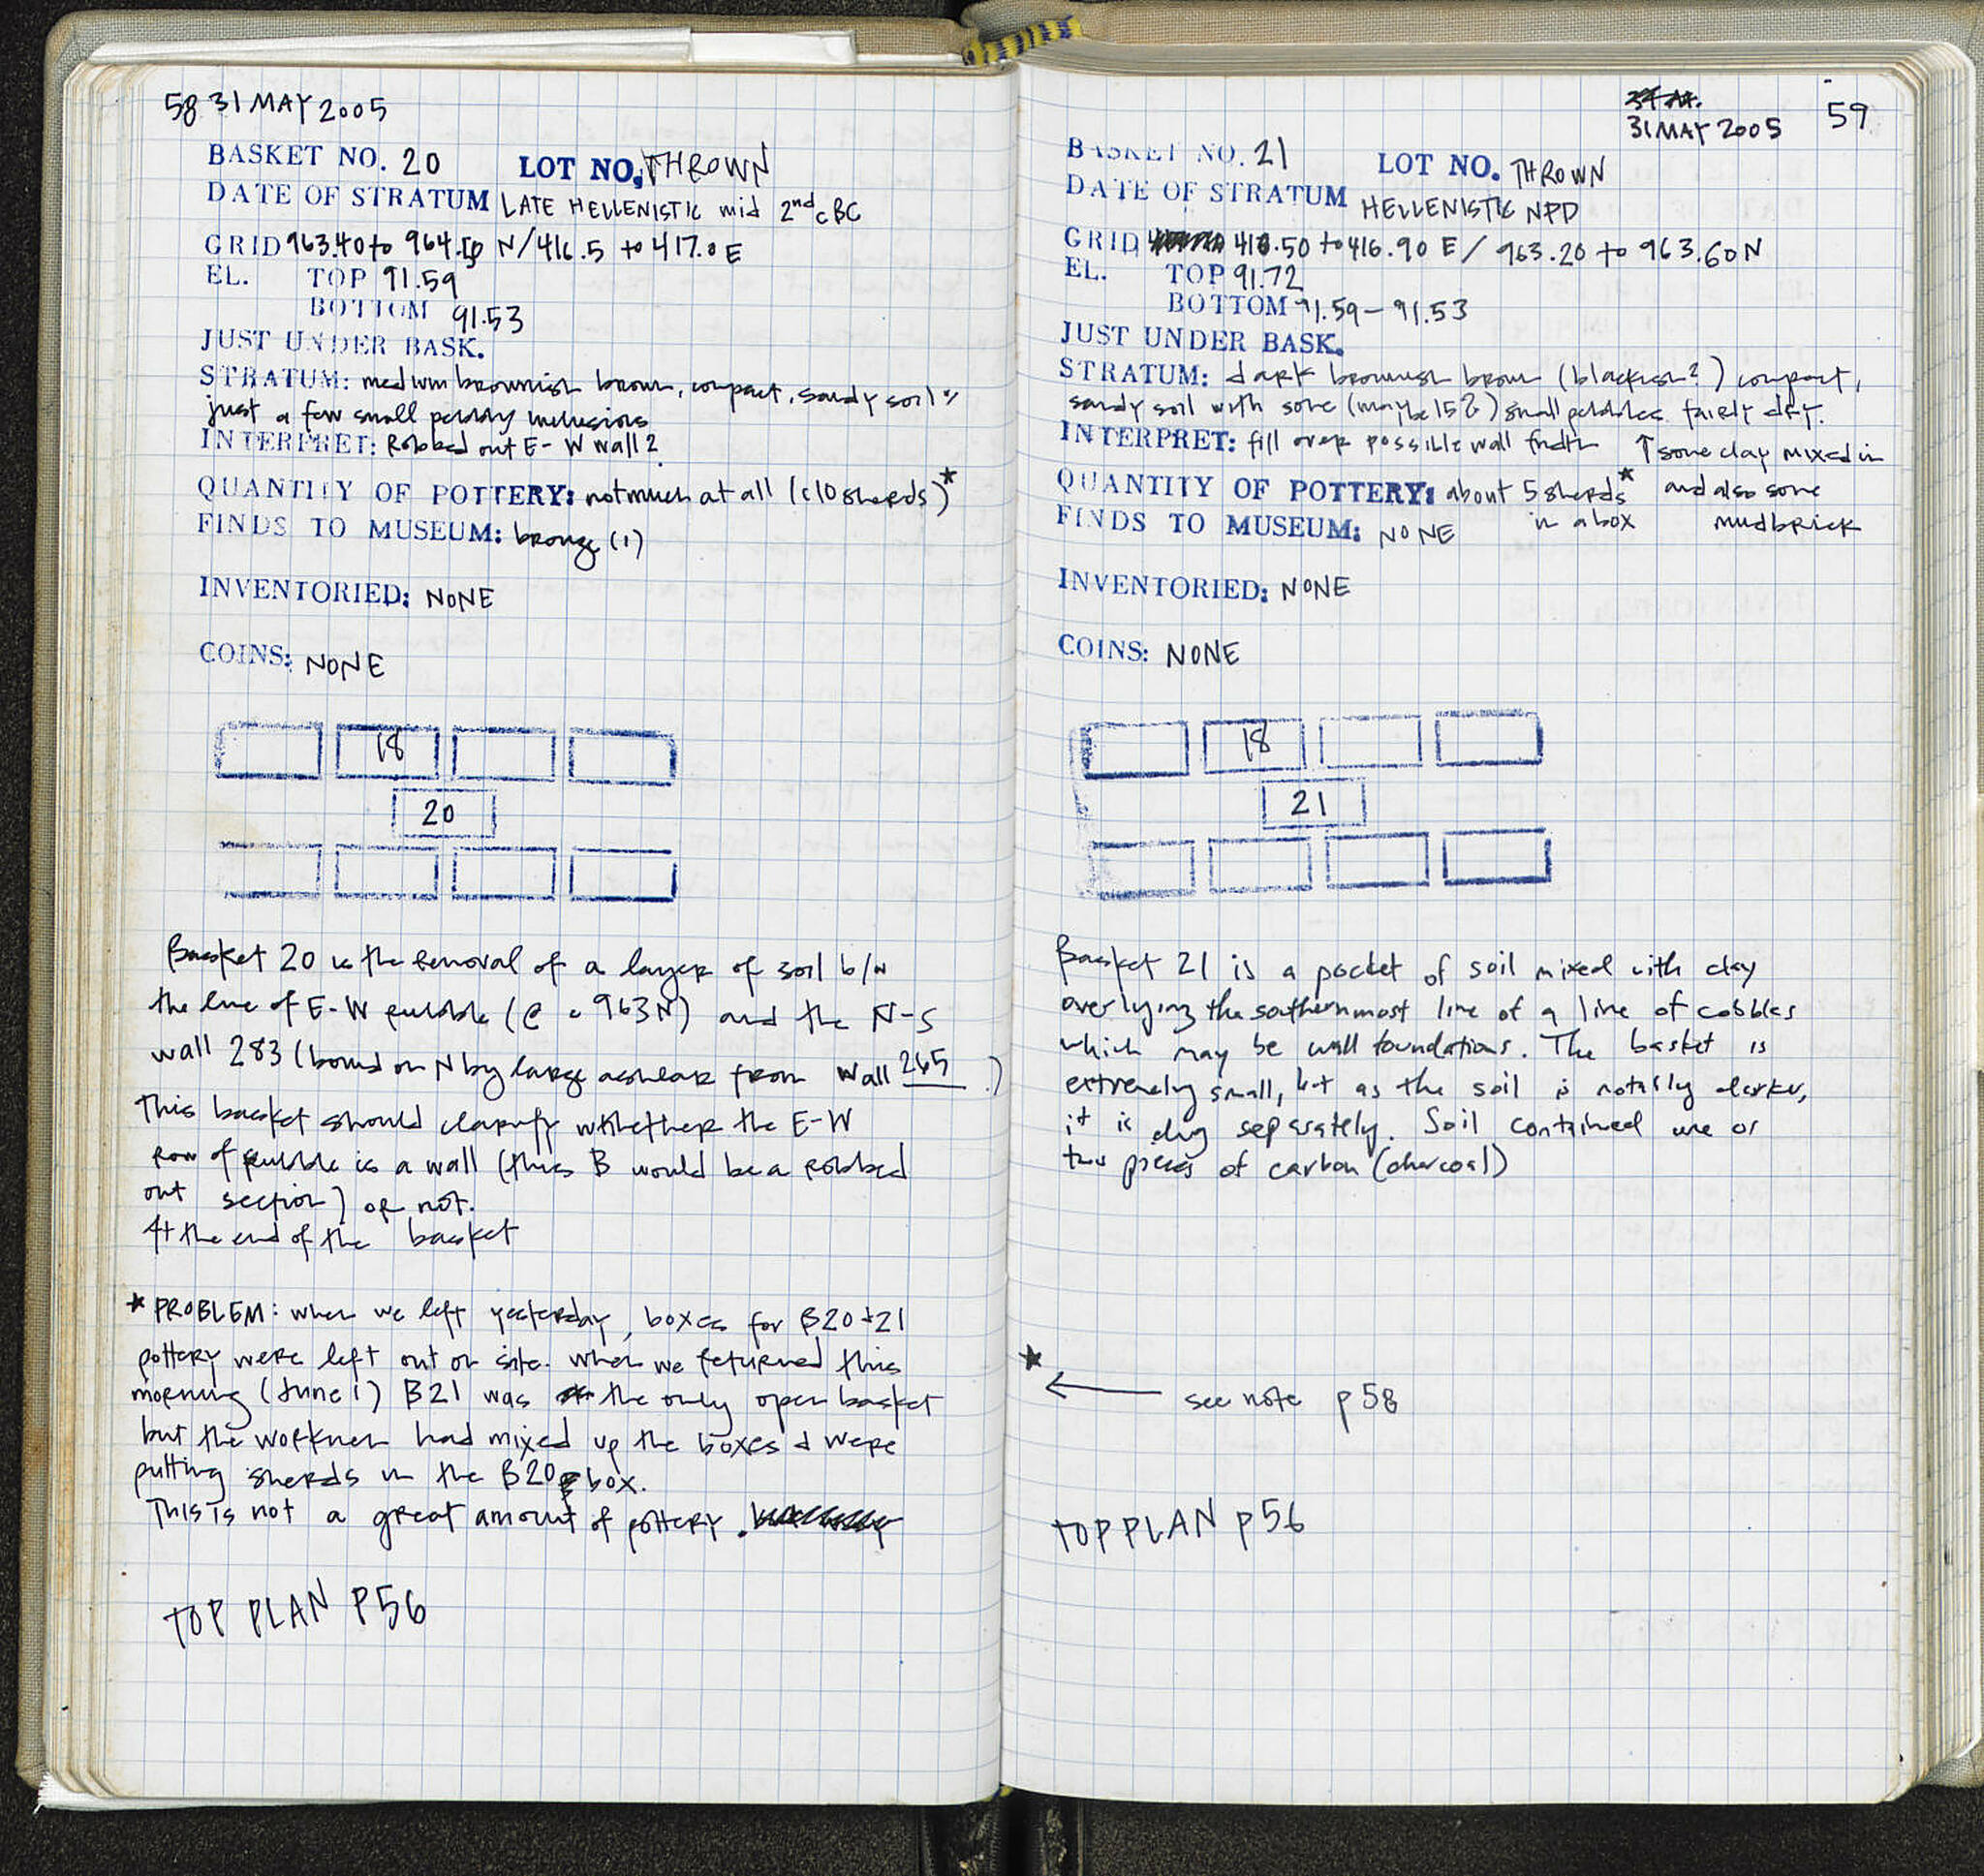 58 31 MAY 2005
BASKET NO. 20 LOT NO. THROWN
DATE OF STRATUM LATE HELLENISTIC mid 2nd c BC
GRID 963.40 to 964.50 N/416.5 to 417.0 E
EL. TOP 91.59
BOTTOM 91.53
JUST UNDER BASK.
STRATUM: medium brownish brown, compact, sandy soil w/
just a few small pebbly inclusions
INTERPRET: Robbed out E-W wall?
QUANTITY OF POTTERY: not much at all (c10 sherds)*
FINDS TO MUSEUM: bronze (1)
INVENTORIED: NONE
COINS: NONE
18
20
Basket 20 is the removal of a layer of soil b/w
the line of E-W rubble (@ c 963N) and the N-S
wall 283 (bound on N by large ashlar from wall 265.)
This basket should clarify whether the E-W
row of rubble is a wall (this B would be a robbed
out section) or not.
At the end of the basket
* PROBLEM: when we left yesterday, boxes for B20+21
pottery were left out on site. When we returned this
morning (June 1) B21 was the only open basket
but the workmen had mixed up the boxes & were
putting sherds in the B20 box.
This is not a great amount of pottery.
TOP PLAN P56
31 MAY 2005 59
BASKET NO. 21 LOT NO. THROWN
DATE OF STRATUM HELLENISTIC NPD
GRID 416.50 to 416.90 E / 963.20 to 963.60 N
EL. TOP 91.72
BOTTOM 91.59 – 91.53
JUST UNDER BASK.
STRATUM: dark brownish brown (blackish?) compact,
sandy soil with some (maybe 15%) small pebbles. fairly dry.
INTERPRET: fill over possible wall fndtn ↑ some clay mixed in
QUANTITY OF POTTERY: about 5 sherds* and also some
FINDS TO MUSEUM: NONE in a box mudbrick
INVENTORIED: NONE
COINS: NONE
18
21
Basket 21 is a pocket of soil mixed with clay
overlying the southernmost line of a line of cobbles
which may be wall foundations. The basket is
extremely small, but as the soil is notably darker,
it is dug separately. Soil contained one or
two pieces of carbon (charcoal)
*
← see note p 58
TOP PLAN p 56